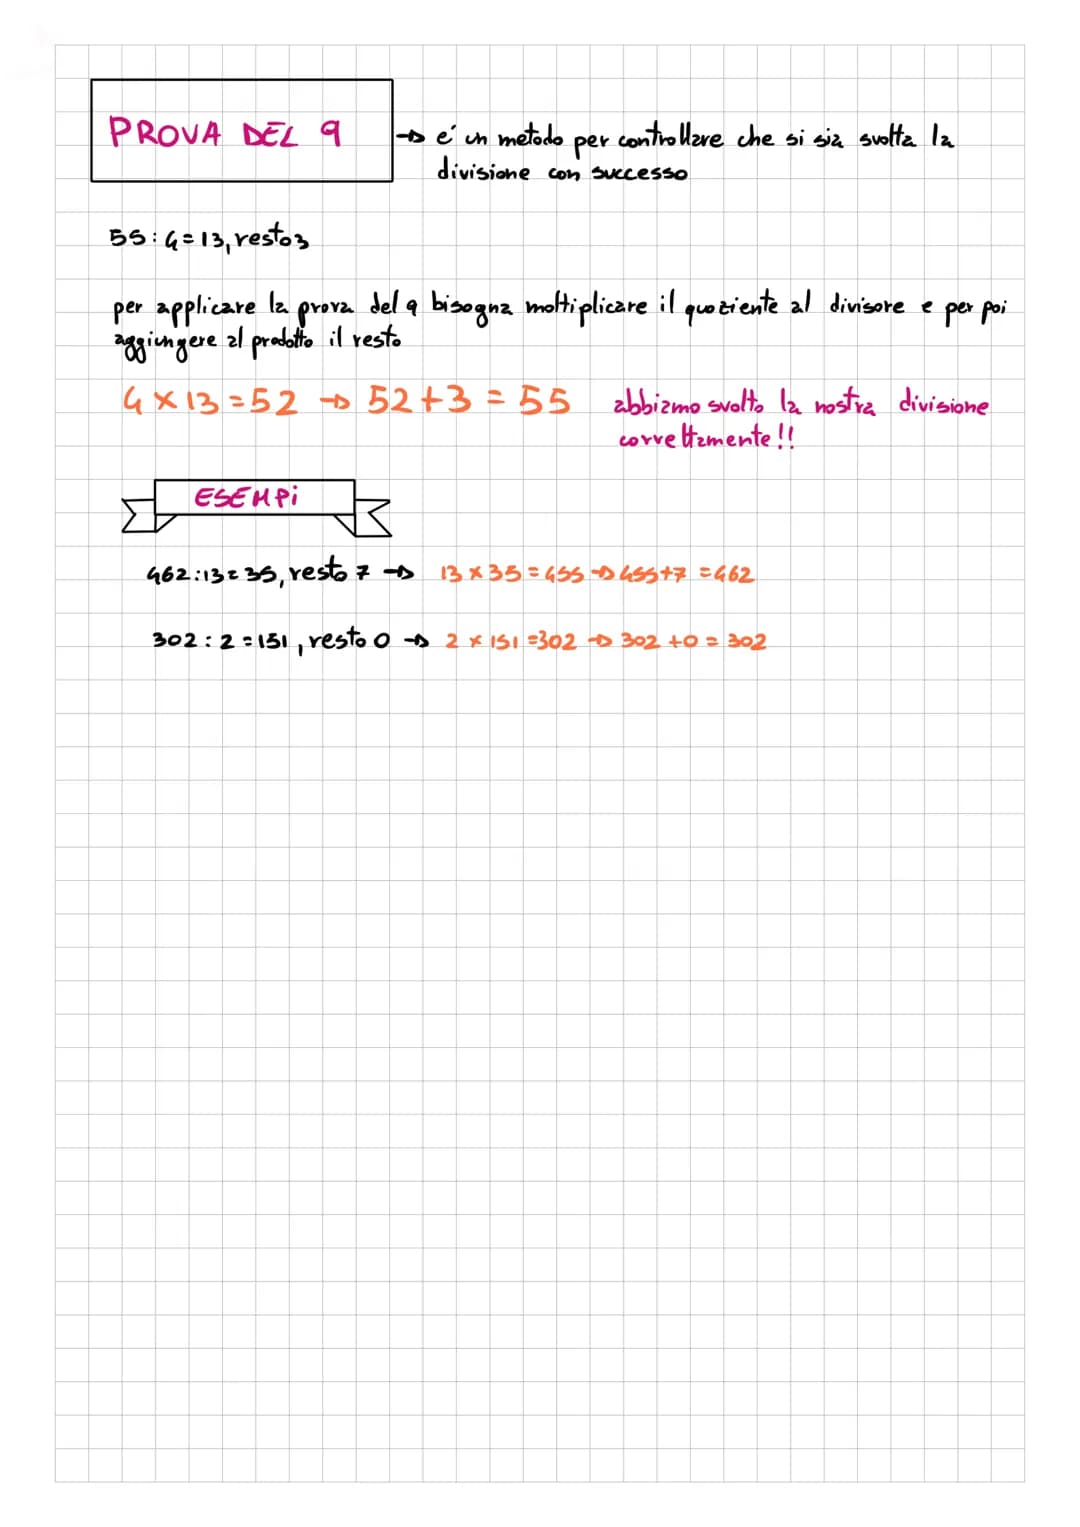 PROVA DEL 9
→ é un metodo per controllare che si sia svolta la
divisione con successo
55:4=13, resto3
per applicare la prova del 9 bisogna moltiplicare il quoziente al divisore e per poi
aggiungere al prodotto il resto
4×13=52 → 52+3=55 abbiamo svolto la nostra divisione
correttamente!!
ESEMPi
462:13=35, resto 7 → 13×35=455→455+7=462
302:2=151, resto 0 → 2×151=302 → 302+0=302